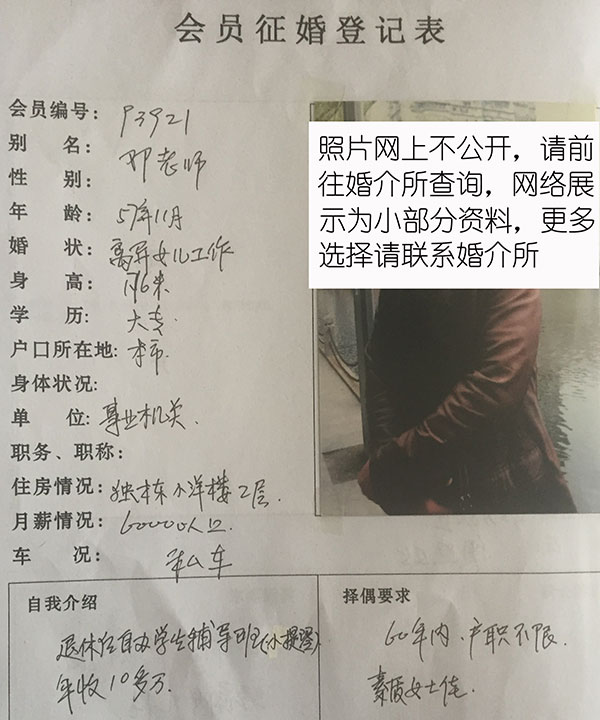 会员征婚登记表
会员编号: P3921
别 名: 邓老师
性 别:
年 龄: 57年11月
婚 状: 离异女儿工作
身 高: 1.76米
学 历: 大专
户口所在地: 本市
身体状况:
单 位: 事业机关
职务、职称:
住房情况: 独栋小洋楼2层
月薪情况:
车 况:
照片网上不公开，请前
往婚介所查询，网络展
示为小部分资料，更多
选择请联系婚介所
自我介绍
退休后自办学生辅导班
年收10多万.
择偶要求
60年内、户职不限.
素质女士佳.